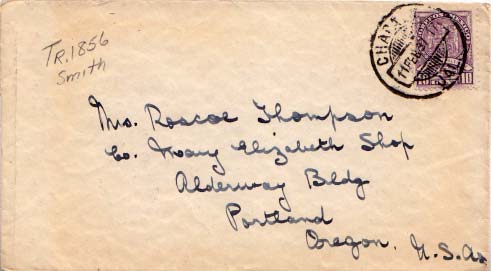 Tr. 1856
Smith
CHAPA
11 FEB 37
JAL
10
Mrs. Roscoe Thompson
Co. Mary Elizabeth Shop
Alderway Bldg
Portland
Oregon. U.S.A.